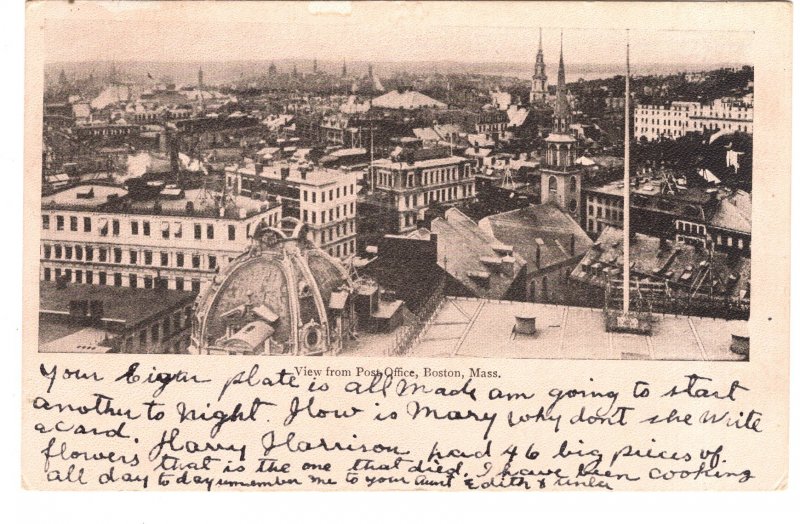 View from Post Office, Boston, Mass.
Your Cigar plate is all made am going to start
another to night. How is Mary why dont she write
a card. Harry Harrison had 46 big pieces of
flowers that is the one that died. I have been cooking
all day to day remember me to your Aunt Edith &